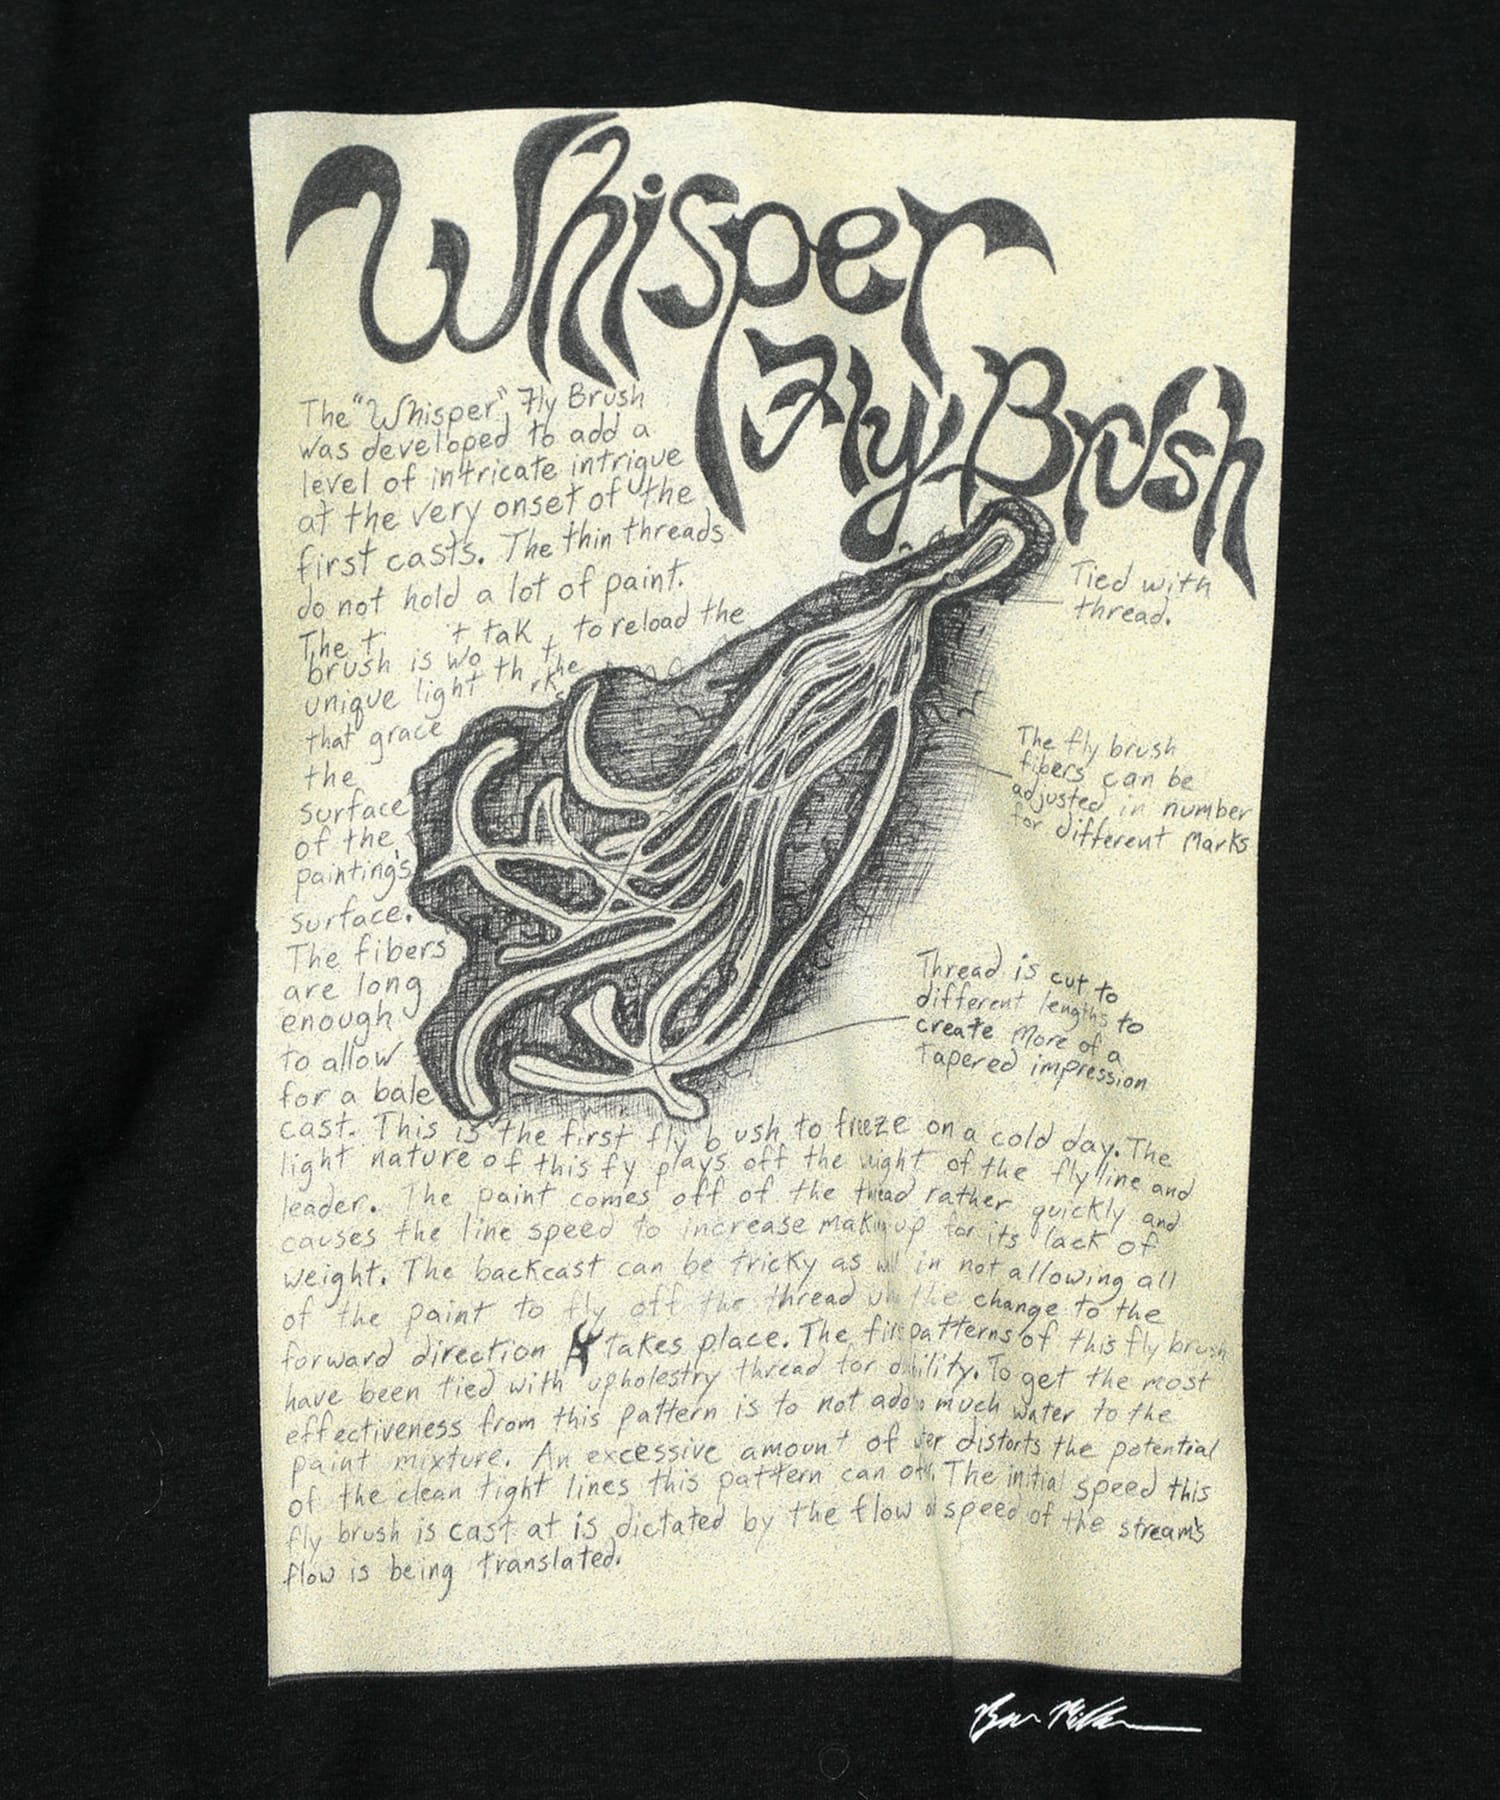 Whisper
Fly Brush
The "Whisper" Fly Brush
was developed to add a
level of intricate intrigue
at the very onset of the
first casts. The thin threads
do not hold a lot of paint.
The t t tak to reload the
brush is wo th the
unique light rks
that grace
the
surface
of the
painting's
surface.
The fibers
are long
enough
to allow
for a bale
cast. This is the first fly b ush to freeze on a cold day. The
light nature of this fy plays off the wight of the fly line and
leader. The paint comes off of the thread rather quickly and
causes the line speed to increase making up for its lack of
weight. The backcast can be tricky as well in not allowing all
of the paint to fly off the thread the change to the
forward direction takes place. The patterns of this fly brush
have been tied with upholestry thread for To get the most
effectiveness from this pattern is to not add much water to the
paint mixture. An excessive amount of distorts the potential
of the clean tight lines this pattern can The initial speed this
fly brush is cast at is dictated by the flow speed of the stream's
flow is being translated.
Tied with
thread.
The fly brush
fibers can be
adjusted in number
for different marks
Thread is cut to
different lengths to
create more of a
tapered impression